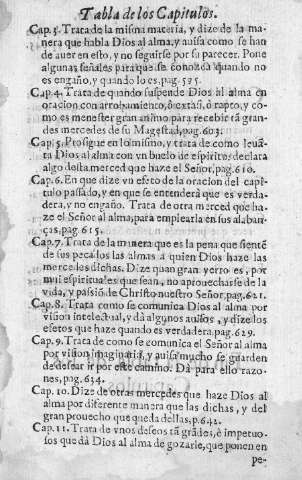 Tabla de los Capitulos.
Cap. 3. Trata de la misma materia, y dize de la ma-
nera que habla Dios al alma, y auisa como se han
de auer en esto, y no seguirse por su parecer. Pone
algunas señales para que se conozca quando no
es engaño, y quando lo es. pag. 595.
Cap. 4. Trata de quando suspende Dios al alma en
oracion con arrobamiento, ò extasi, ò rapto, y co-
mo es menester gran animo para recibir tã gran-
des mercedes de su Magestad, pag. 603.
Cap. 5. Prosigue en lo mismo, y trata de como leuã-
ta Dios al alma con vn buelo de espiritu; declara
algo desta merced que haze el Señor, pag. 610.
Cap. 6. En que dize vn efeto de la oracion del capi-
tulo passado, y en que se entenderà que es verda-
dera, y no engaño. Trata de otra merced que ha-
ze el Señor al alma, para emplearla en sus alaban-
ças, pag. 615.
Cap. 7. Trata de la manera que es la pena que sientẽ
de sus pecados las almas a quien Dios haze las
mercedes dichas. Dize quan gran yerro es, por
mui espirituales que sean, no aprouecharse de la
vida, y passiõ de Christo nuestro Señor, pag. 621.
Cap. 8. Trata como se comunica Dios al alma por
vision intelectual, y dà algunos auisos, y dize los
efetos que haze quando es verdadera, pag. 629.
Cap. 9. Trata de como se comunica el Señor al alma
por vision imaginaria, y auisa mucho se guarden
de desear ir por este camino. Dà para ello razo-
nes, pag. 634.
Cap. 10. Dize de otras mercedes que haze Dios al
alma por diferente manera que las dichas, y del
gran prouecho que queda dellas, p. 642.
Cap. 11. Trata de vnos deseos tã grãdes, è impetuo-
sos que dà Dios al alma de gozarle, que ponen en
pe-